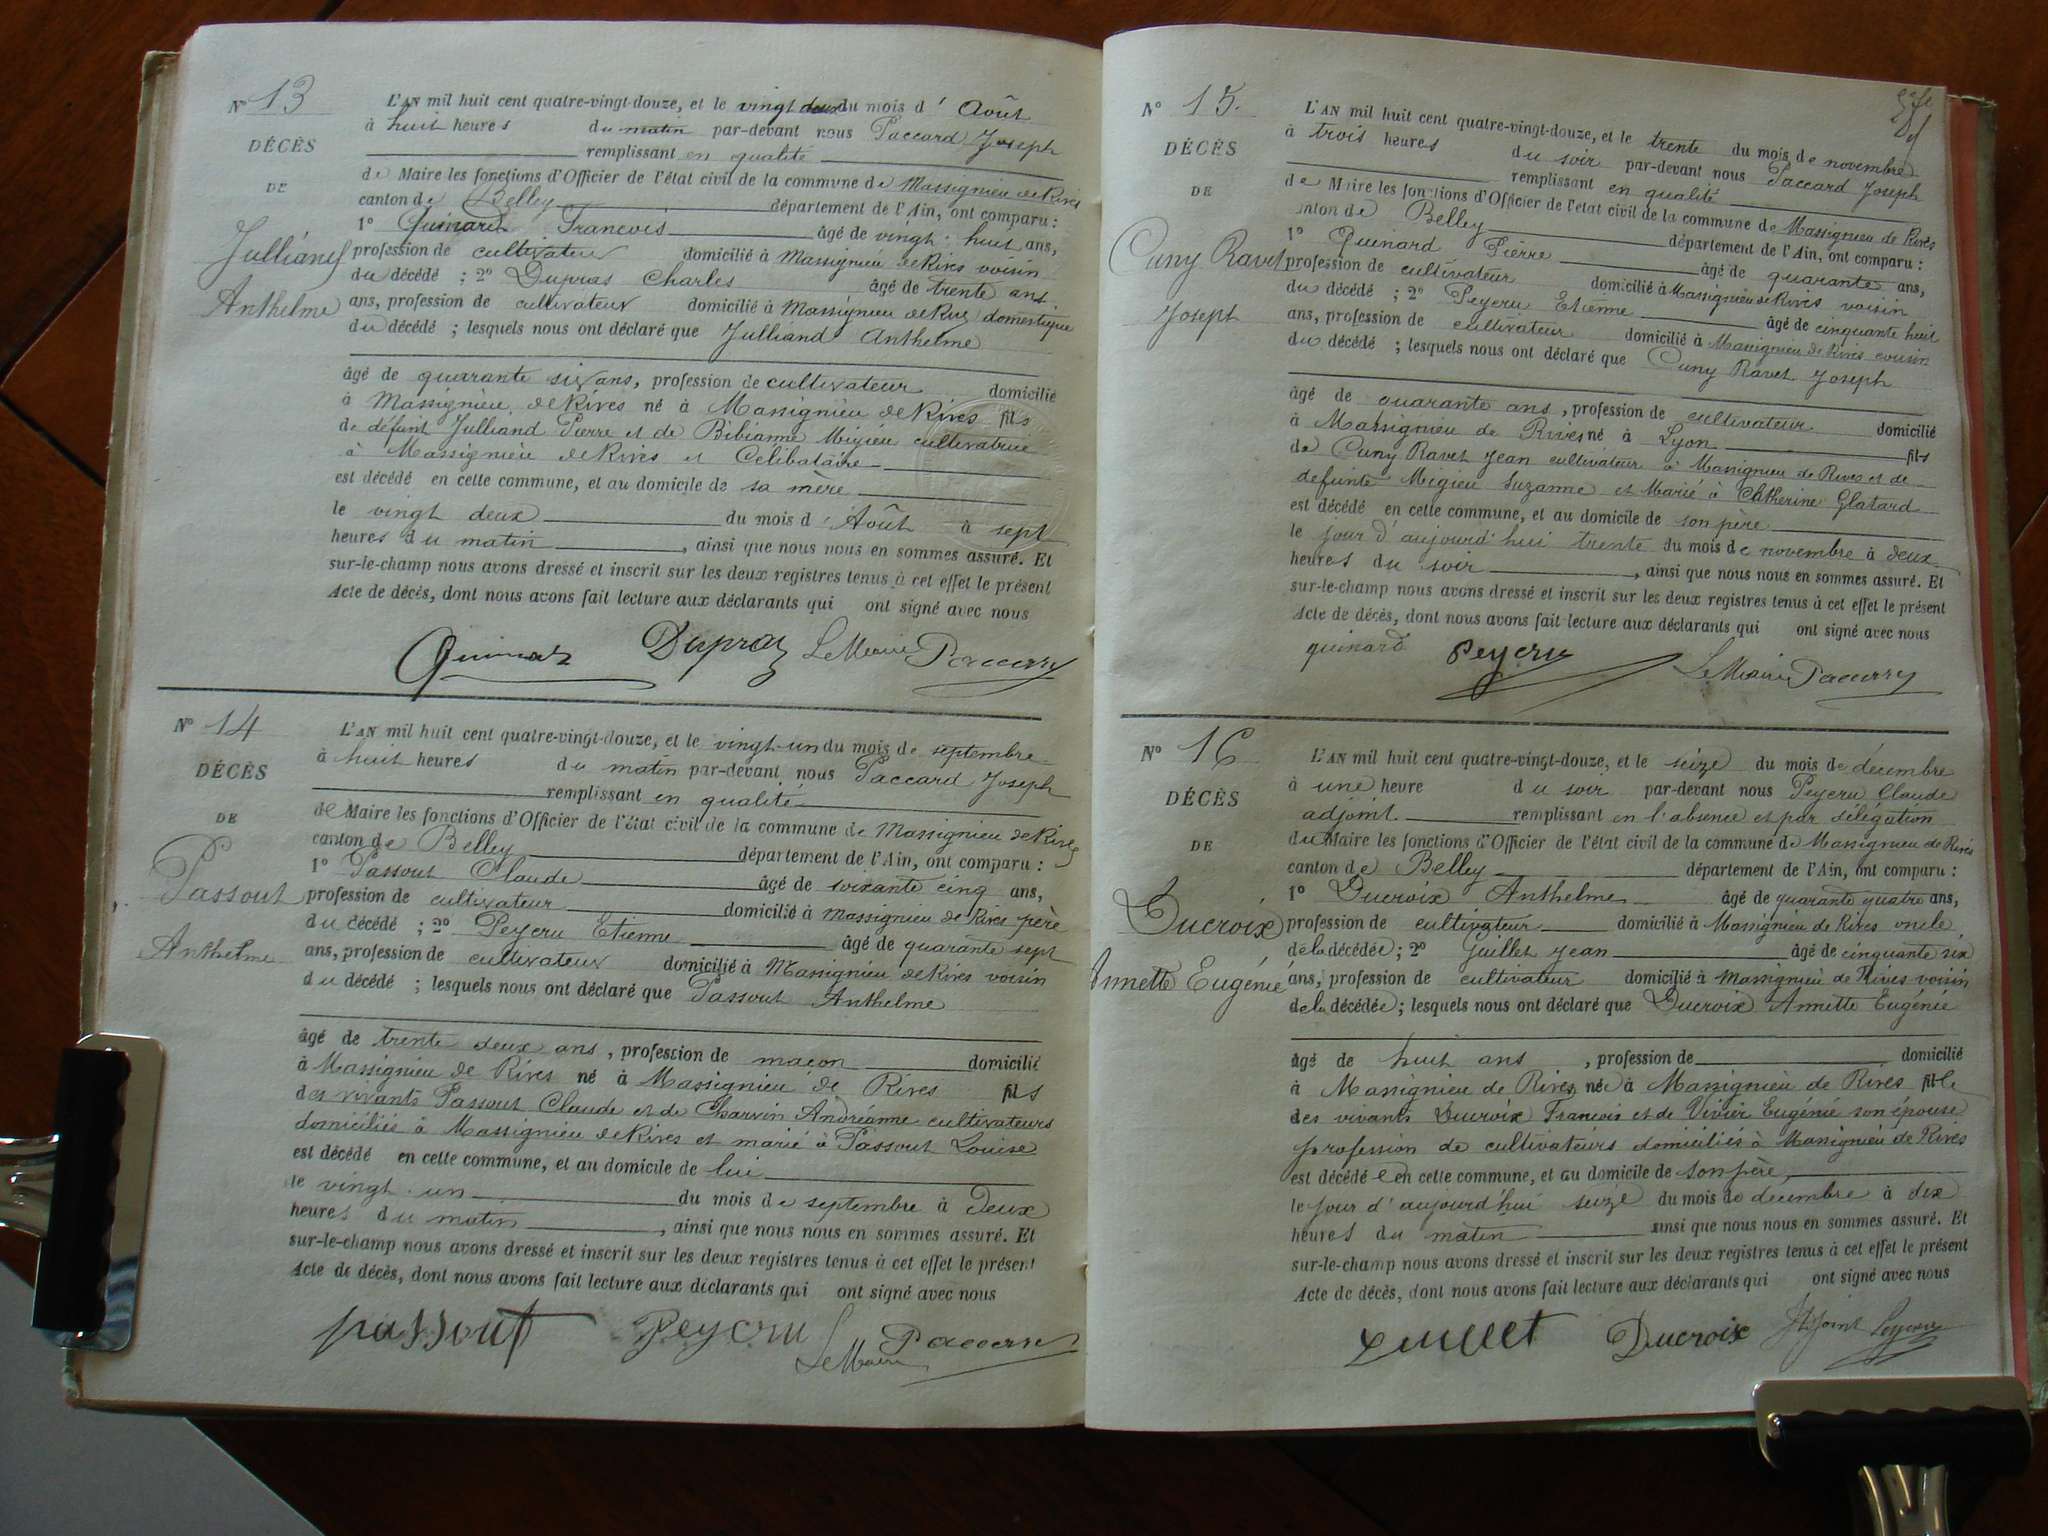 N° 13
DÉCÈS
DE
Julliand
Anthelme
L'AN mil huit cent quatre-vingt-douze, et le vingt deux du mois d' Août
à huit heures du matin par-devant nous Paccard Joseph
remplissant en qualité
de Maire les fonctions d'Officier de l'état civil de la commune de Massignieu de Rives
canton de Belley département de l'Ain, ont comparu :
1° Quinard Francois âgé de vingt huit ans,
profession de cultivateur domicilié à Massignieu de Rives voisin
du décédé ; 2° Dupras Charles âgé de trente ans
ans, profession de cultivateur domicilié à Massignieu de Rives domestique
du décédé ; lesquels nous ont déclaré que Julliand Anthelme
âgé de quarante six ans, profession de cultivateur domicilié
à Massignieu de Rives né à Massignieu de Rives fils
de défunt Julliand Pierre et de Bibianne Migieu cultivatrice
à Massignieu de Rives et Célibataire
est décédé en cette commune, et au domicile de sa mère
le vingt deux du mois d' Août à sept
heures du matin, ainsi que nous nous en sommes assuré. Et
sur-le-champ nous avons dressé et inscrit sur les deux registres tenus à cet effet le présent
Acte de décès, dont nous avons fait lecture aux déclarants qui ont signé avec nous
Quinard Dupraz Le Maire Paccard
N° 14
DÉCÈS
DE
Passout
Anthelme
L'AN mil huit cent quatre-vingt-douze, et le vingt-un du mois de septembre
à huit heures du matin par-devant nous Paccard Joseph
remplissant en qualité
de Maire les fonctions d'Officier de l'état civil de la commune de Massignieu de Rives
canton de Belley département de l'Ain, ont comparu :
1° Passout Claude âgé de soixante cinq ans,
profession de cultivateur domicilié à Massignieu de Rives père
du décédé ; 2° Peycru Etienne âgé de quarante sept
ans, profession de cultivateur domicilié à Massignieu de Rives voisin
du décédé ; lesquels nous ont déclaré que Passout Anthelme
âgé de trente deux ans, profession de maçon domicilié
à Massignieu de Rives né à Massignieu de Rives fils
des vivants Passout Claude et de Charvin Andréanne cultivateurs
domiciliés à Massignieu de Rives et marié à Passout Louise
est décédé en cette commune, et au domicile de lui
le vingt un du mois de septembre à Deux
heures du matin, ainsi que nous nous en sommes assuré. Et
sur-le-champ nous avons dressé et inscrit sur les deux registres tenus à cet effet le présent
Acte de décès, dont nous avons fait lecture aux déclarants qui ont signé avec nous
passout Peycru Le Maire Paccard
N° 15.
DÉCÈS
DE
Cuny Ravet
Joseph
L'AN mil huit cent quatre-vingt-douze, et le trente du mois de novembre
à trois heures du soir par-devant nous Paccard Joseph
remplissant en qualité
de Maire les fonctions d'Officier de l'état civil de la commune de Massignieu de Rives
canton de Belley département de l'Ain, ont comparu :
1° Quinard Pierre âgé de quarante ans,
profession de cultivateur domicilié à Massignieu de Rives voisin
du décédé ; 2° Peycru Etienne âgé de cinquante huit
ans, profession de cultivateur domicilié à Massignieu de Rives cousin
du décédé ; lesquels nous ont déclaré que Cuny Ravet Joseph
âgé de quarante ans, profession de cultivateur domicilié
à Massignieu de Rives né à Lyon fils
de Cuny Ravet Jean cultivateur à Massignieu de Rives et de
defunte Migieu Suzanne et Marié à Chtherine Glatard
est décédé en cette commune, et au domicile de son père
le jour d'aujourd'hui trente du mois de novembre à deux
heures du soir, ainsi que nous nous en sommes assuré. Et
sur-le-champ nous avons dressé et inscrit sur les deux registres tenus à cet effet le présent
Acte de décès, dont nous avons fait lecture aux déclarants qui ont signé avec nous
quinard Peycru Le Maire Paccard
N° 16
DÉCÈS
DE
Ducroix
Annette Eugénie
L'AN mil huit cent quatre-vingt-douze, et le seize du mois de décembre
à une heure du soir par-devant nous Peycru Claude
adjoint remplissant en l'absence et par délégation
du Maire les fonctions d'Officier de l'état civil de la commune de Massignieu de Rives
canton de Belley département de l'Ain, ont comparu :
1° Ducroix Anthelme âgé de quarante quatre ans,
profession de cultivateur domicilié à Massignieu de Rives oncle
de la décédée ; 2° Guillet Jean âgé de cinquante six
ans, profession de cultivateur domicilié à Massignieu de Rives voisin
de la décédée ; lesquels nous ont déclaré que Ducroix Annette Eugénie
âgé de huit ans, profession de domicilié
à Massignieu de Rives née à Massignieu de Rives fille
des vivants Ducroix Francois et de Vivier Eugénie son épouse
profession de cultivateurs domiciliés à Massignieu de Rives
est décédée en cette commune, et au domicile de son père
le jour d'aujourd'hui seize du mois de décembre à dix
heures du matin ainsi que nous nous en sommes assuré. Et
sur-le-champ nous avons dressé et inscrit sur les deux registres tenus à cet effet le présent
Acte de décès, dont nous avons fait lecture aux déclarants qui ont signé avec nous
Guillet Ducroix Peycru